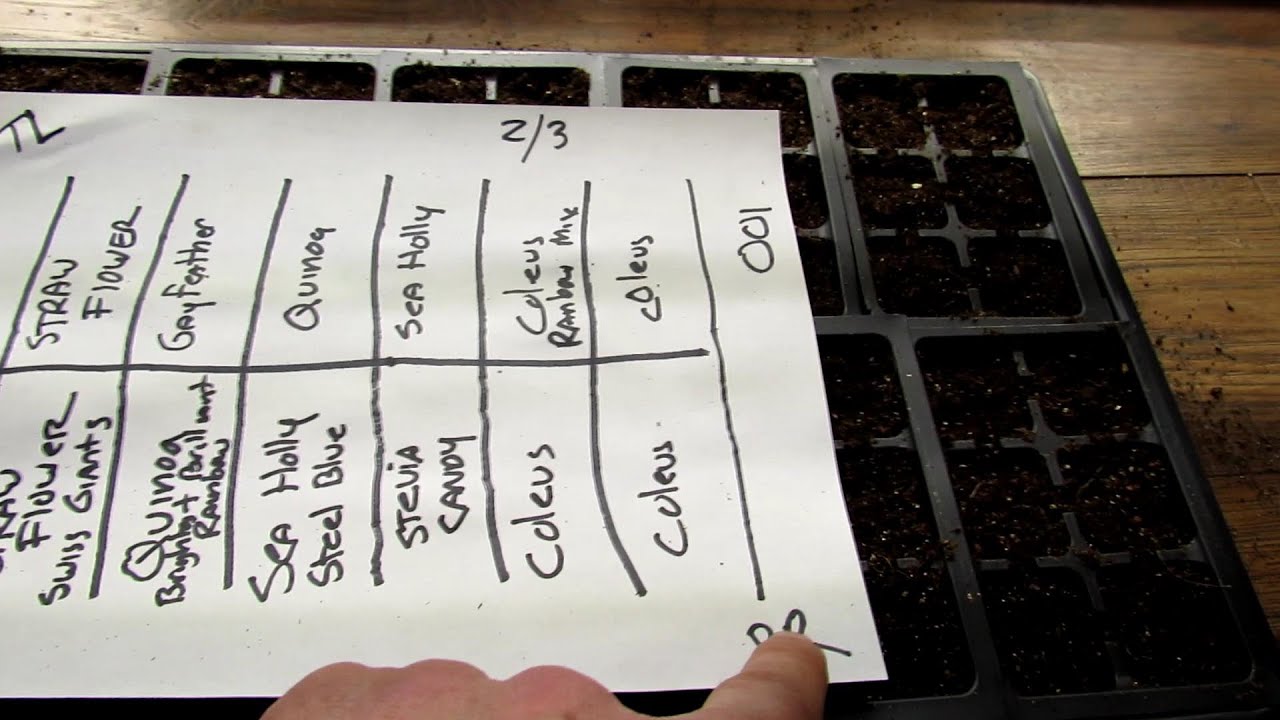 2/3
STRAW
FLOWER
Gayfeather
Quinoa
Sea Holly
Coleus
Rainbow Mix
Coleus
001
Flower
Swiss Giants
Quinoa
Brightest Brilliant
Rainbow
Sea Holly
Steel Blue
Stevia
CANDY
Coleus
Coleus